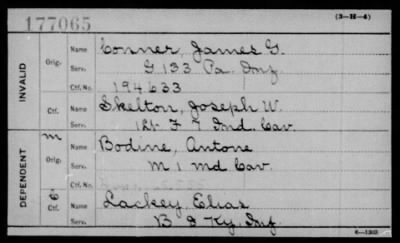 177065
(3-H-4)
INVALID
Orig.
Name Conner, James G.
Serv. G 133 Pa. Inf
Ctf. No. 194633
Ctf.
Name Skelton, Joseph W.
Serv. 1st F 7 Ind. Cav.
DEPENDENT
m
Orig.
Name Bodine, Antone
Serv. M 1 Md Cav.
Ctf. No.
Ctf.
Name Lackey, Elias
Serv. B 8 Ky. Inf.